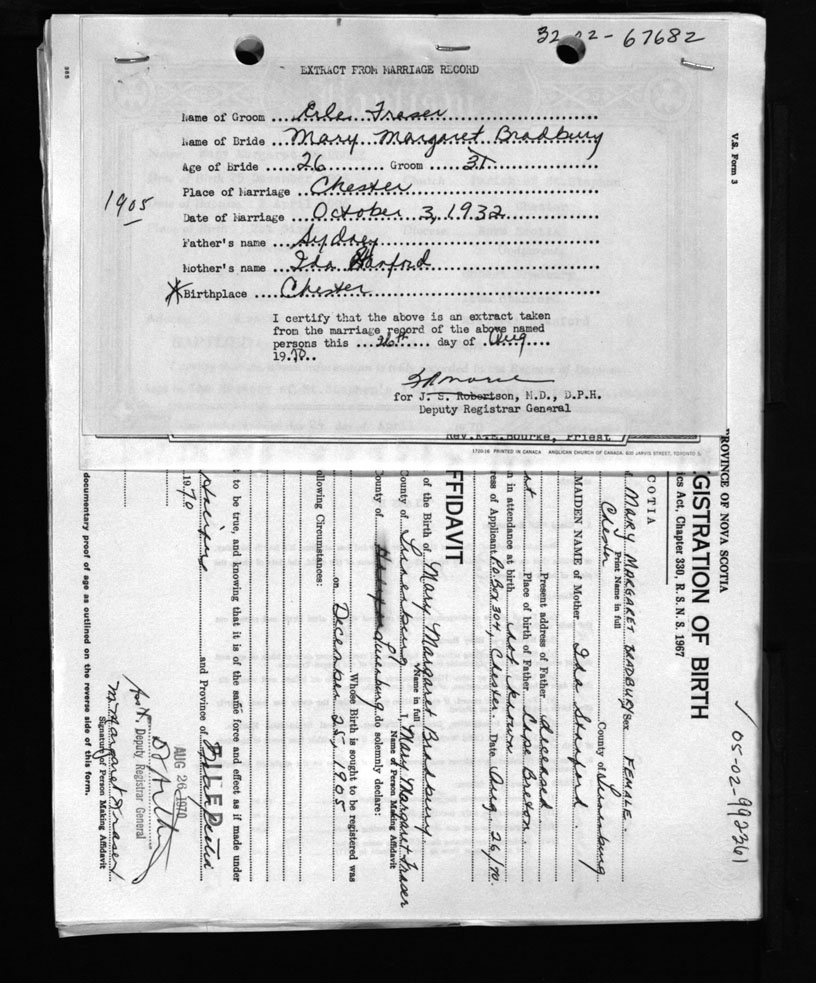 32-02-67682
EXTRACT FROM MARRIAGE RECORD
Name of Groom ... Fraser
Name of Bride ... Mary Margaret Bradbury
Age of Bride ..... 26 .......... Groom ...... 31
Place of Marriage .. Chester
Date of Marriage ... October 3, 1932
Father's name ... Sydney
Mother's name ... Ida
Birthplace .... Chester
1905
I certify that the above is an extract taken
from the marriage record of the above named
persons this ... 26th .... day of . Aug ....
19.70..
for J. S. Robertson, M.D., D.P.H.
Deputy Registrar General
Rev. Bourke, Priest
1710-16 PRINTED IN CANADA ANGLICAN CHURCH OF CANADA, 600 JARVIS STREET, TORONTO 5
V.S. Form 3
366
05-02-992261
PROVINCE OF NOVA SCOTIA
GISTRATION OF BIRTH
ics Act, Chapter 330, R. S. N. S. 1967
COTIA
MARY MARGARET BRADBURY Sex FEMALE.
Print Name in full
Chester County of Lunenburg
MAIDEN NAME of Mother Ida Stanford
Present address of Father deceased
Place of birth of Father Cape Breton.
n in attendance at birth not known
ress of Applicant P.O. Box 304, Chester. Date Aug. 26/70.
FFIDAVIT
of the Birth of Mary Margaret Bradbury.
Name in full
County of Lunenburg I, Mary Margaret Fraser
Name of Person Making Affidavit
County of Lunenburg do solemnly declare:
Whose Birth is sought to be registered was
on December 25, 1905
ollowing Circumstances:
t to be true, and knowing that it is of the same force and effect as if made under
and Province of
19 70
FILED
AUG 26 1970
Deputy Registrar General
M. Margaret Fraser
Signature of Person Making Affidavit
documentary proof of age as outlined on the reverse side of this form.